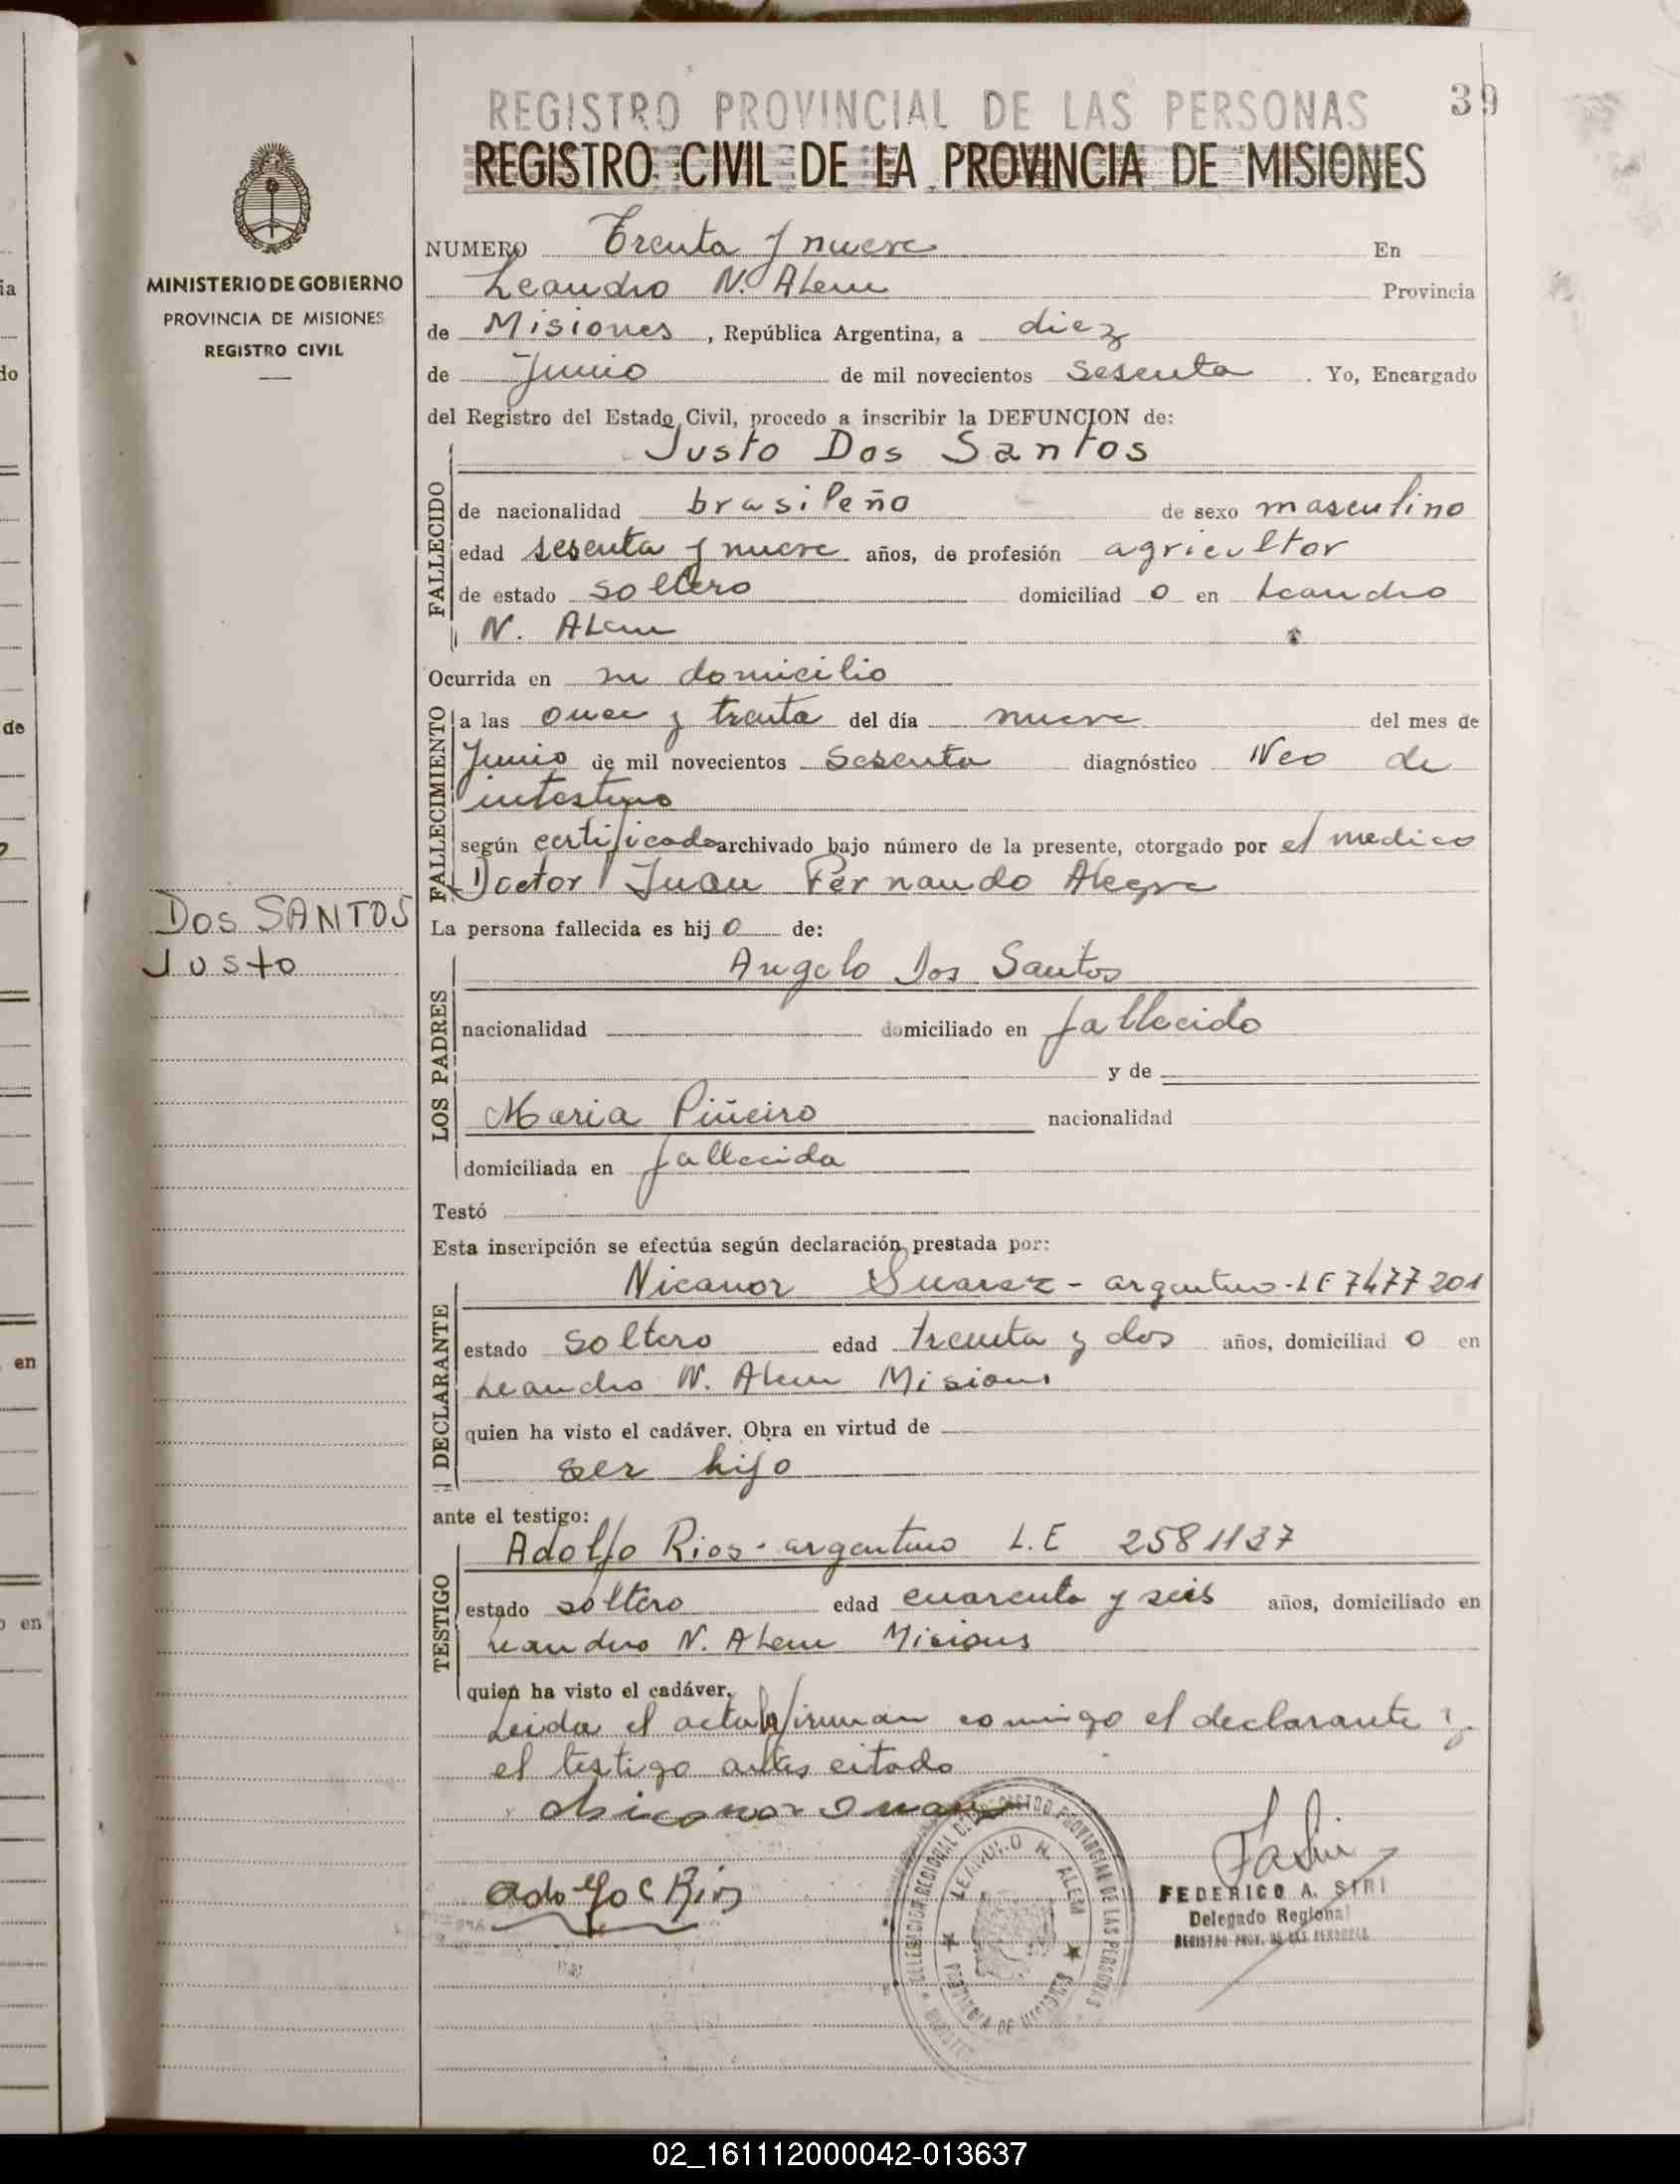 REGISTRO PROVINCIAL DE LAS PERSONAS
39
REGISTRO CIVIL DE LA PROVINCIA DE MISIONES
MINISTERIO DE GOBIERNO
PROVINCIA DE MISIONES
REGISTRO CIVIL
DOS SANTOS
Justo
NUMERO Treinta y nueve En
Leandro N. Alem Provincia
de Misiones, República Argentina, a diez
de Junio de mil novecientos sesenta. Yo, Encargado
del Registro del Estado Civil, procedo a inscribir la DEFUNCION de:
Justo Dos Santos
FALLECIDO
de nacionalidad brasileño de sexo masculino
edad sesenta y nueve años, de profesión agricultor
de estado soltero domiciliad o en Leandro
N. Alem
Ocurrida en su domicilio
FALLECIMIENTO
a las once y treinta del día nueve del mes de
Junio de mil novecientos sesenta diagnóstico Neo de
intestino
según certificado archivado bajo número de la presente, otorgado por el medico
Doctor Juan Fernando Alegre
La persona fallecida es hij o de:
LOS PADRES
Angelo Dos Santos
nacionalidad domiciliado en fallecido
y de
Maria Piñeiro nacionalidad
domiciliada en fallecida
Testó
Esta inscripción se efectúa según declaración prestada por:
DECLARANTE
Nicanor Suarez - argentino - LE 7477201
estado soltero edad treinta y dos años, domiciliad o en
Leandro N. Alem Misiones
quien ha visto el cadáver. Obra en virtud de
ser hijo
ante el testigo:
TESTIGO
Adolfo Rios - argentino L.E 2581137
estado soltero edad cuarenta y seis años, domiciliado en
Leandro N. Alem Misiones
quien ha visto el cadáver.
Leida el acta firman conmigo el declarante y
el testigo antes citado
Nicanor Suarez
Adolfo C Rios
DELEGACION REGIONAL DEL REGISTRO PROVINCIAL DE LAS PERSONAS
LEANDRO N. ALEM
PROVINCIA DE MISIONES
FEDERICO A. SIRI
Delegado Regional
REGISTRO PROV. DE LAS PERSONAS
ia
do
de
en
en
02_161112000042-013637